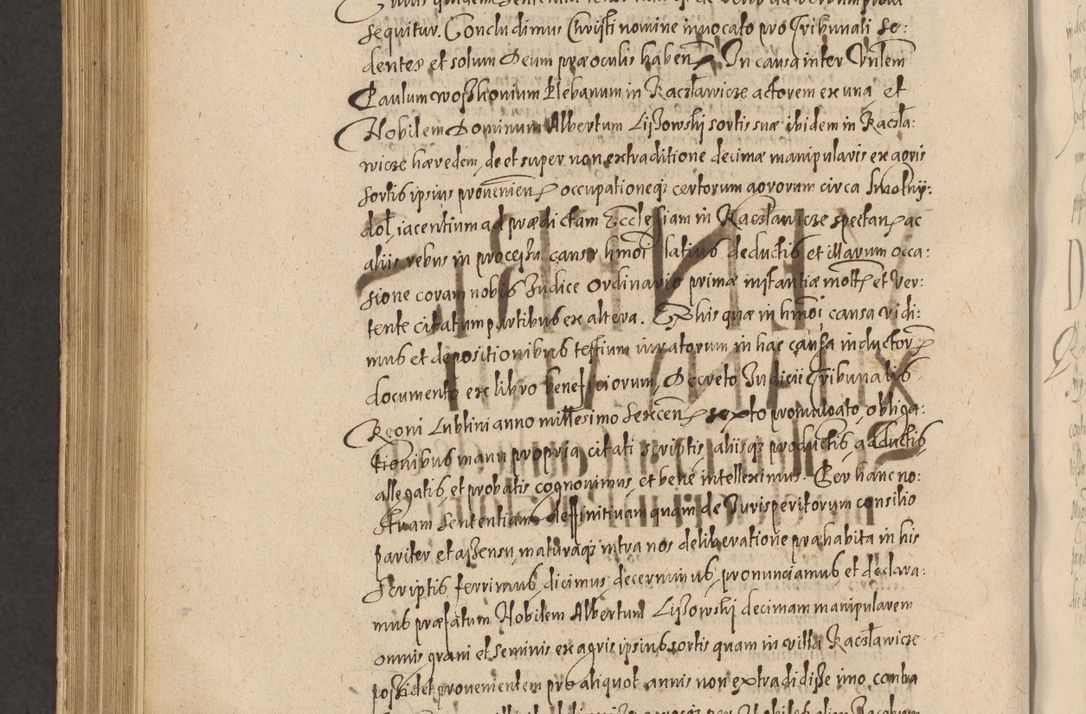 sequitur. Concludimus Christi nomine invocato pro Tribunali se:
dentes et solum Deum præ oculis haben. In causa inter Vnlem
Paulum Plebanum in Raczławicze actorem ex una et
Nobilem Dominum Albertum Lisowski sortis suæ ibidem in Raczła:
wicze hæredem, de et super non extraditione decimæ manipularis ex agris
sortis ipsius provenien occupationeq certorum agrorum circa
iacentium ad prædictam Ecclesiam in Raczławicze spectan ac
aliis rebus in processu causæ hmoi latius deductis et illarum occa:
sione coram nobis Iudice Ordinario primæ instantiæ mott et ver:
tente citatum partibus ex altera. Ex his quæ in hmoi causa vidi:
mus et depositionibus testium iuratorum in hac causa inductor
documento ex libro beneficiorum, Decreto Iudicii Tribunalis
Regni Lublini anno millesimo sexcen sexto promulgato, obliga:
tionibus manu propria citati scriptis aliisq productis, adductis
allegatis, et probatis cognovimus, et bene intelleximus. Per hanc no:
stram Sententiam deffinitivam quam de Iurisperitorum consilio
pariter et assensu maturaq intra nos deliberatione præhabita in his
Scriptis ferrimus, dicimus, decernimus, pronunciamus et declara:
mus præfatum Nobilem Albertum Lisowski decimam manipularem
omnis grani et seminis ex agris ipsius sortis quam in villa Raczławicze
possidet provenientem pro aliquot annis non extradidisse imo contra